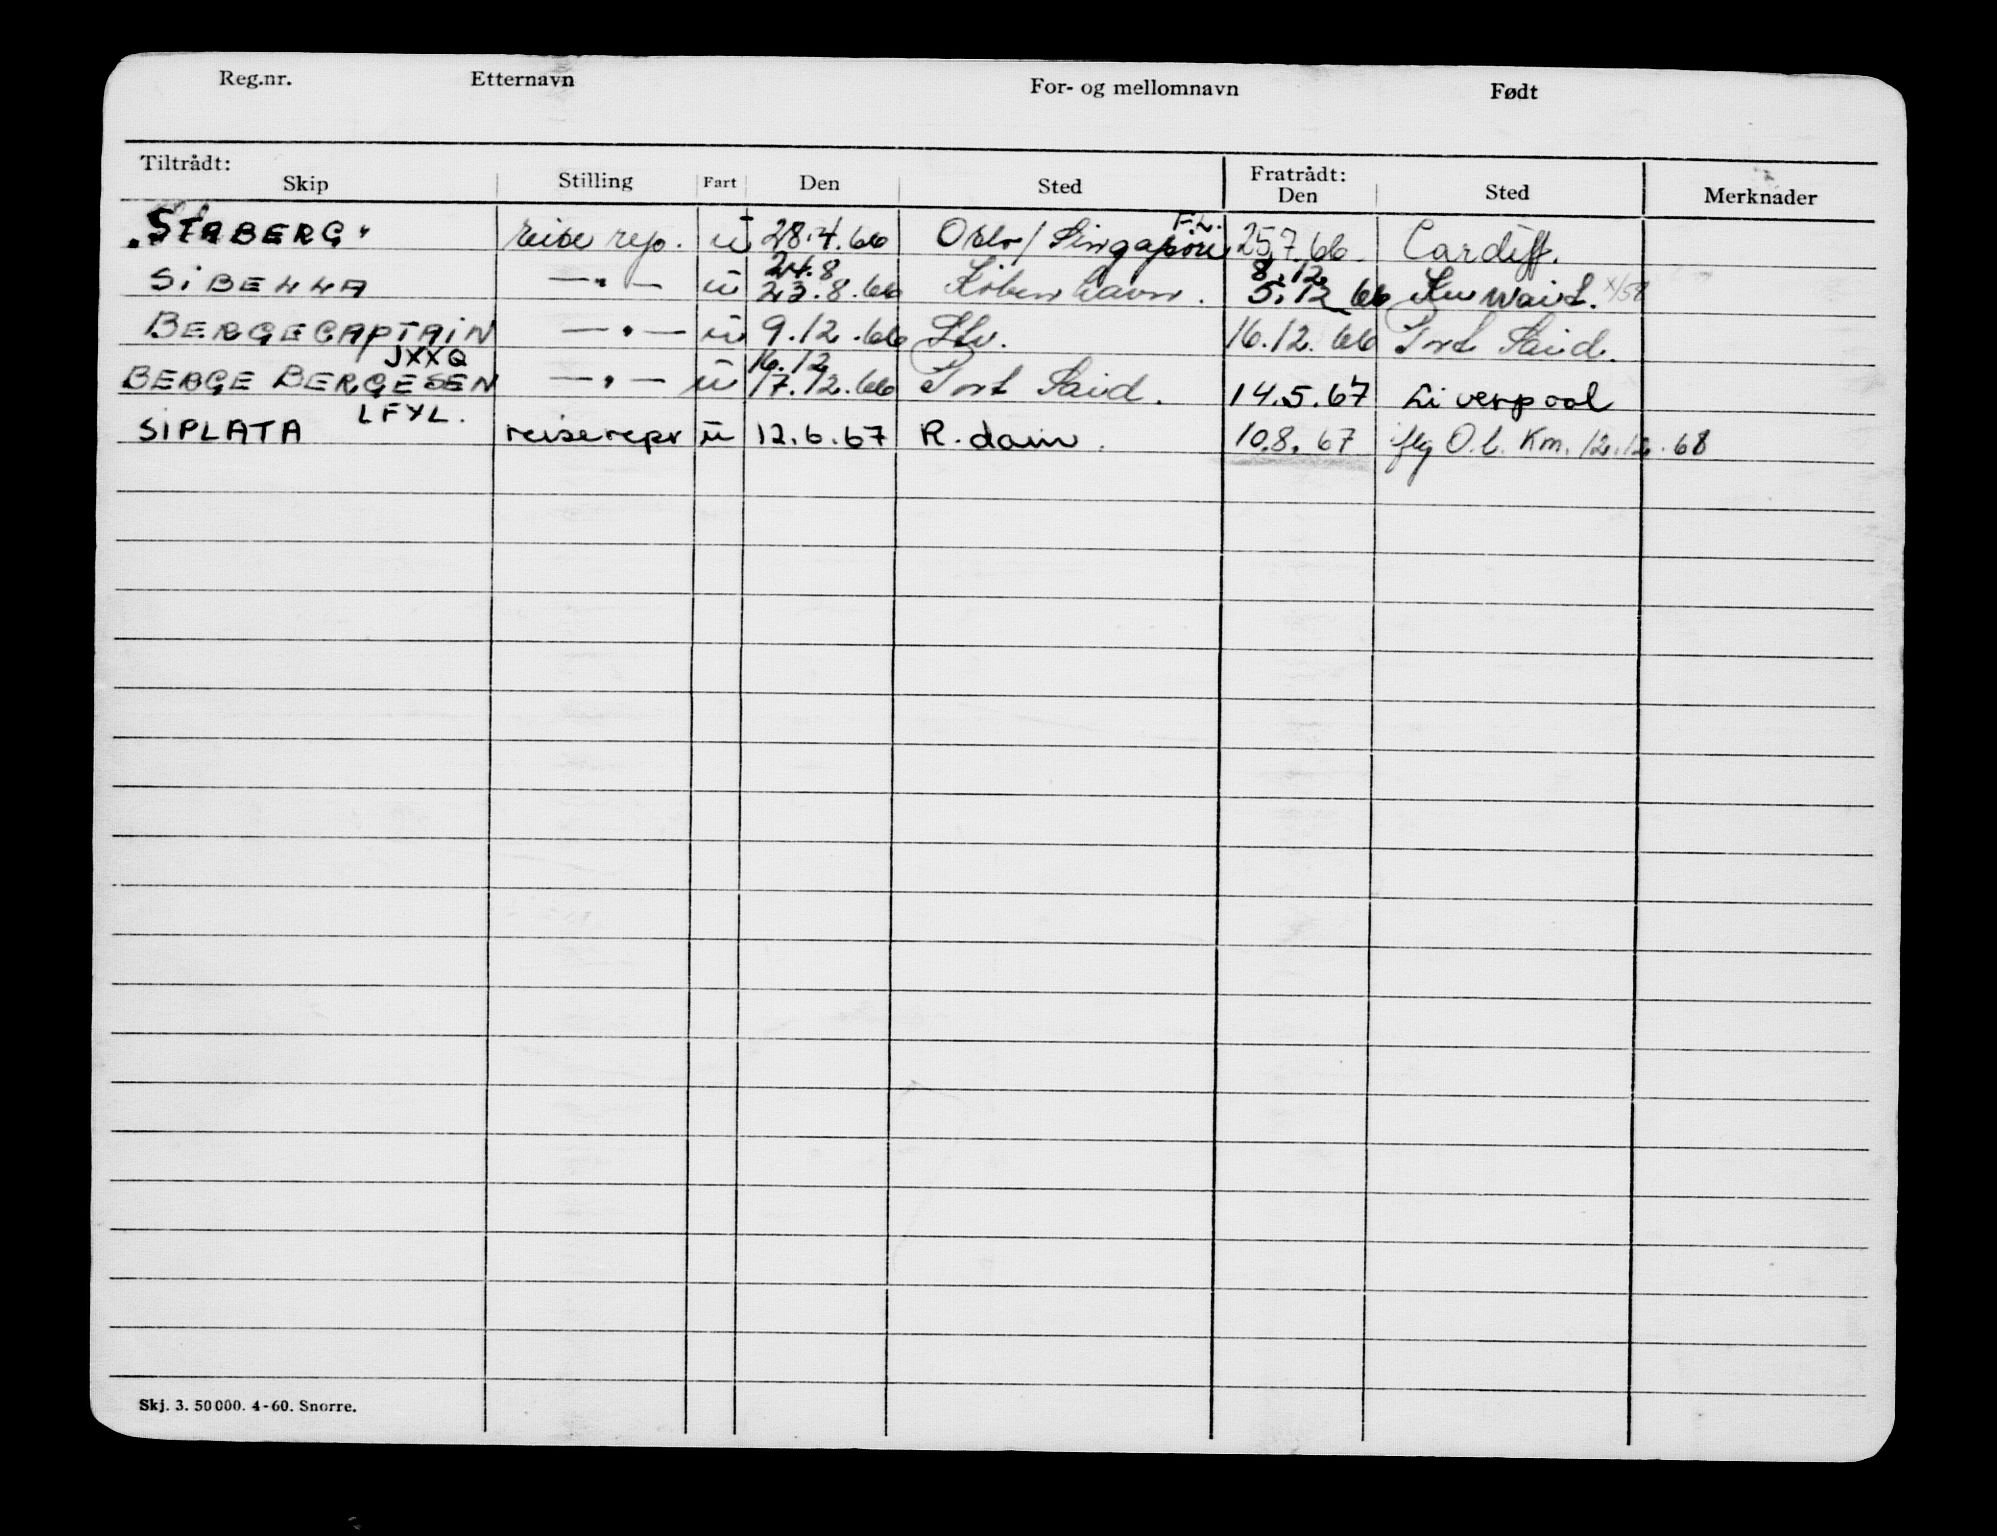 Reg.nr. Etternavn For- og mellomnavn Født
Tiltrådt: Fratrådt:
Skip Stilling Fart Den Sted Den Sted Merknader
F.L.
"STABERG" reise rep. ū 28.4.66 Oslo/Singapore 25.7.66 Cardiff.
24.8 8.12
SIBELLA —"— ū 23.8.66 København. 5.12 66 Kuwait.
BERGECAPTAIN —"— ū 9.12.66 16.12.66 Port Said.
JXXQ 16.12
BERGE BERGESEN —"— ū 17.12.66 Port Said. 14.5.67 Liverpool
LFYL.
SIPLATA reiserepr ū 12.6.67 R.dam. 10.8.67 flg O.l. Km. 12.12.68
Skj. 3. 50000. 4-60. Snorre.